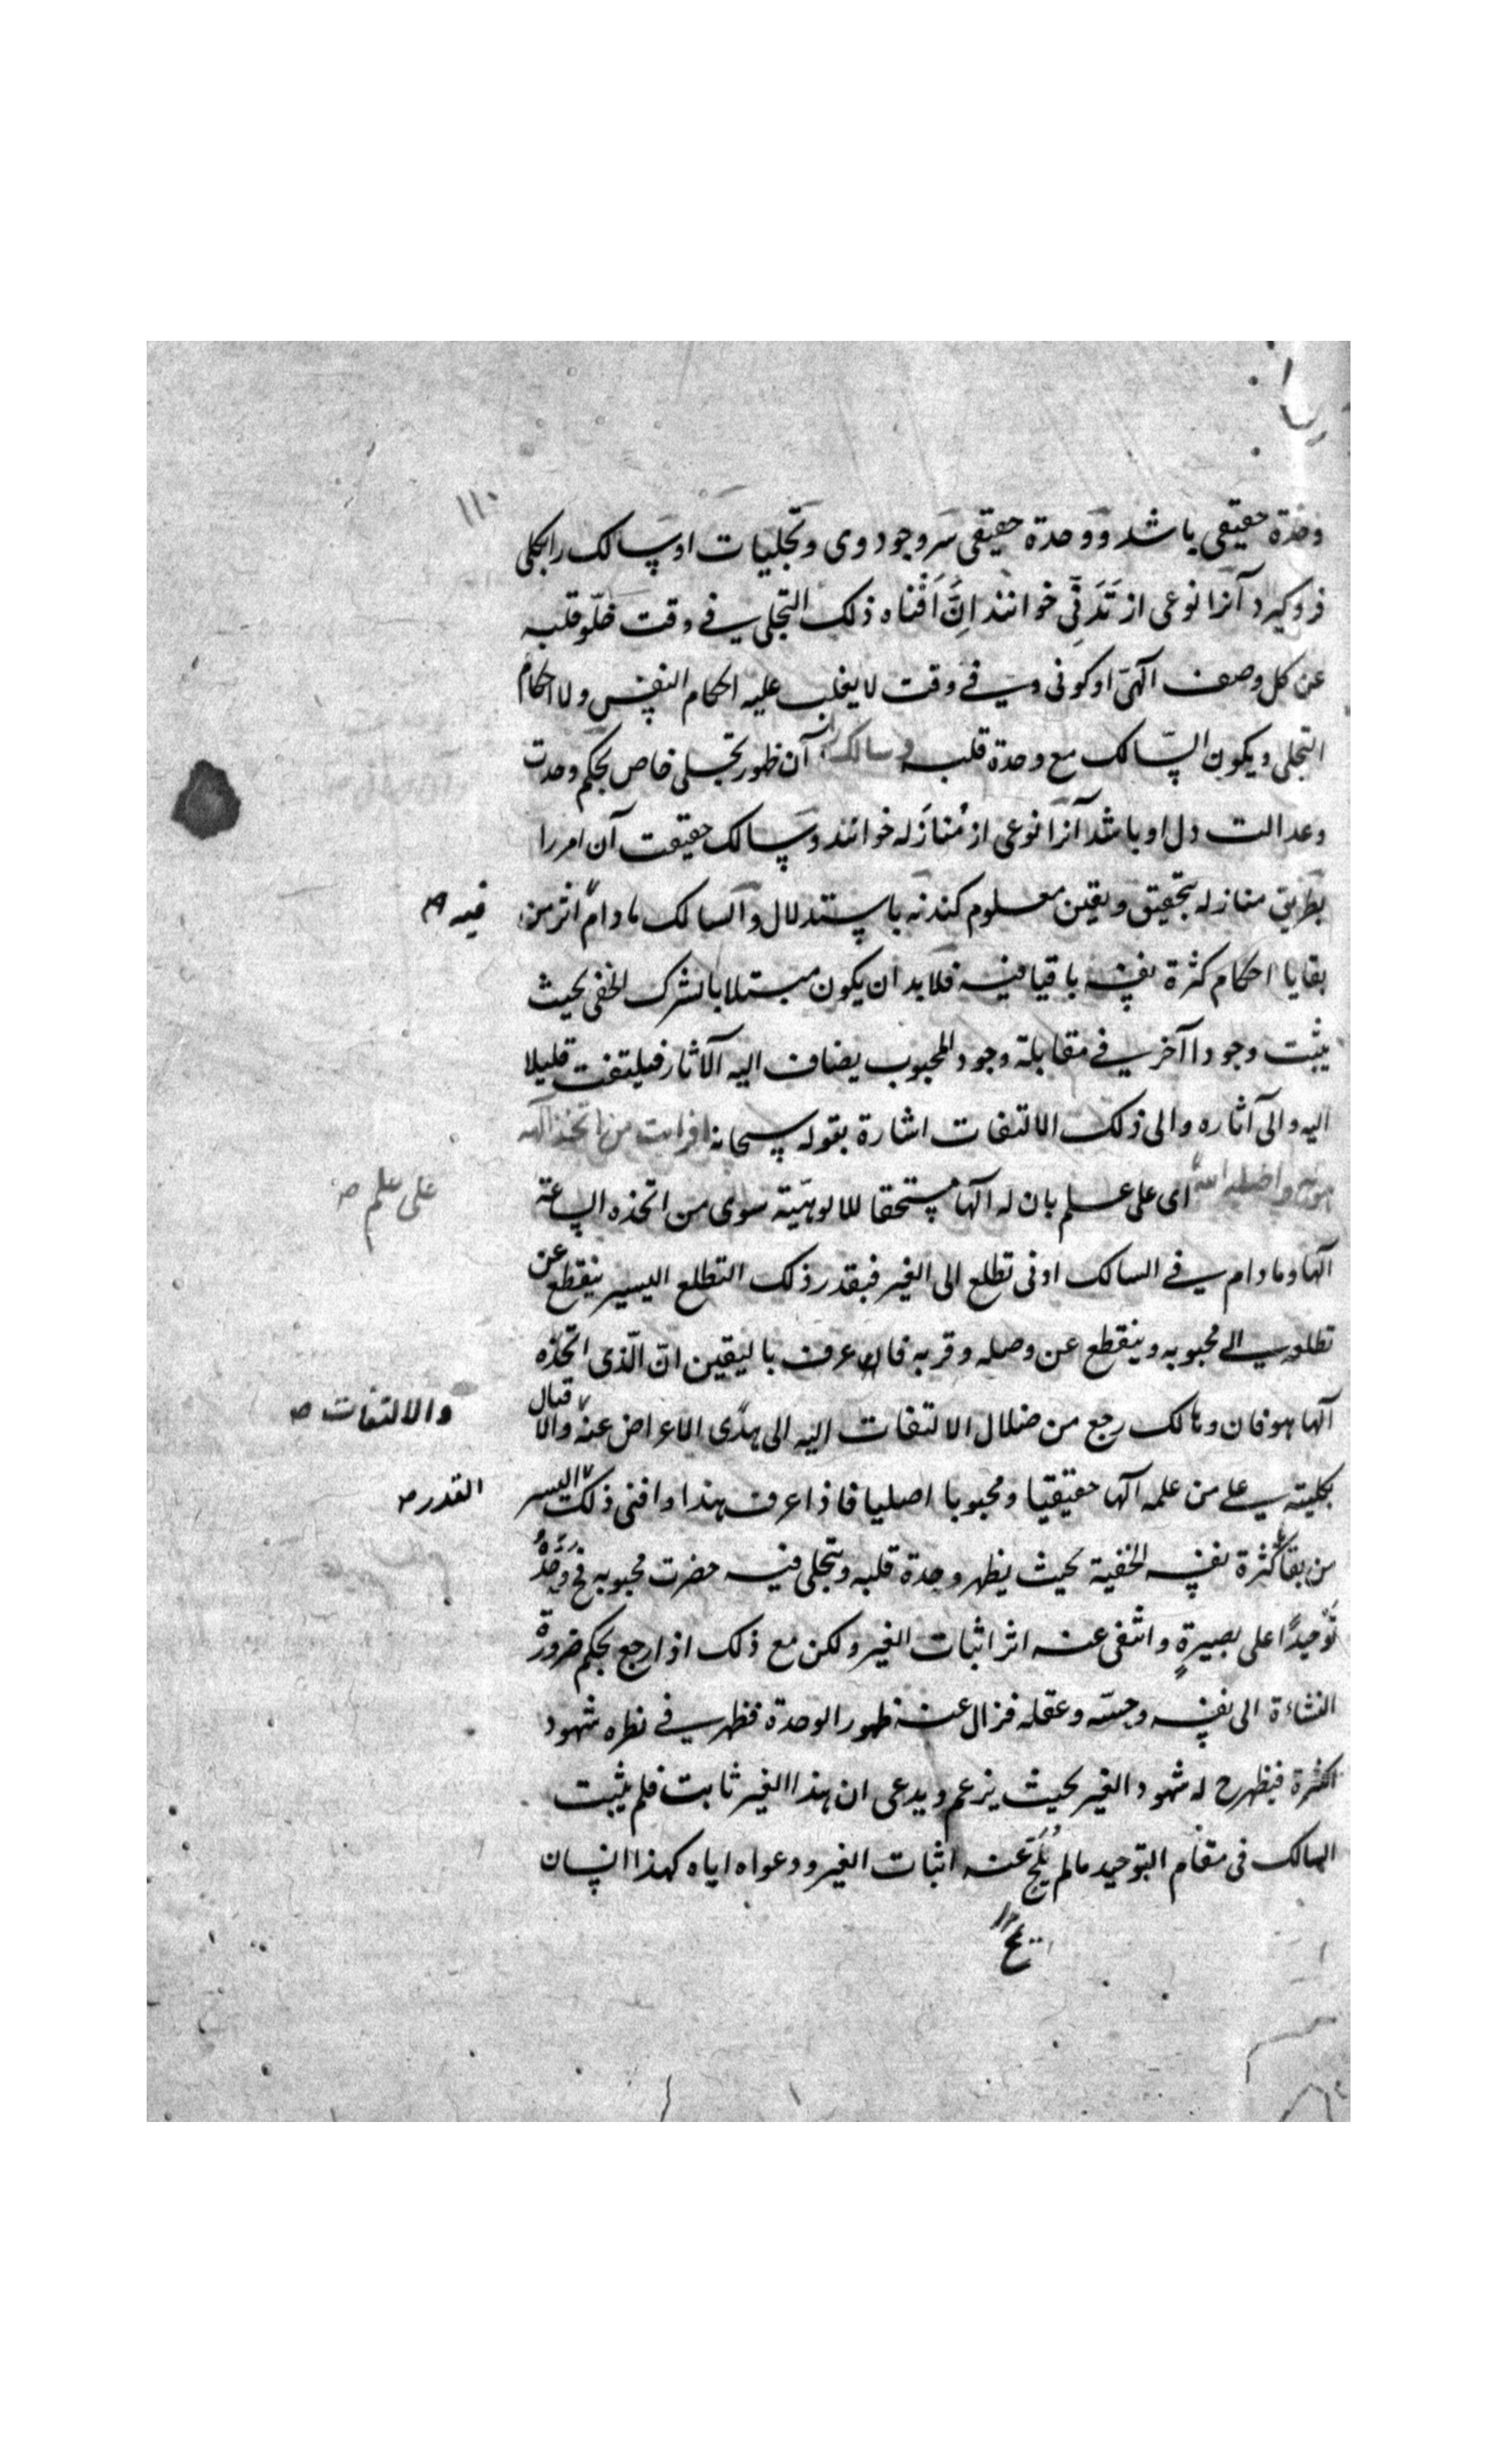 ۱۱۰
وحدة حقیقی باشد و وحدة حقیقی سر وجود وی و تجلیات او سالک را بکلی
فروگیرد آنرا نوعی از تَدَنّی خوانند اِنْ اَفْناه ذلک التجلی فی وقت خلّو قلبه
عن کل وصف آلهیّ او کونی و فی وقت لا یغلب علیه احکام النفس و لا احکام
التجلی و یکون السّالک مع وحدة قلبه و سالک آن ظهور تجلی خاص بحکم وحدت
و عدالت دل او باشد آنرا نوعی از مُنازَله خوانند و سالک حقیقت آن امر را
بطریق منازله بتحقیق و یقین معلوم کند نه باستدلال و السالک مادام اثر من
فیه ص
بقایا احکام کثرة نفسه باقیا فیه فلابد ان یکون مبتلا بالشرک الخفی بحیث
یثبت وجودا آخر فی مقابلة وجود المحبوب یضاف الیه الآثار فیلتفت قلیلا
الیه و الی آثاره و الی ذلک الالتفات اشارة بقوله سبحانه افرایت من اتخذ آلهه
هویه و اضله الله ای علی علم بان له آلها مستحقا للالوهیّة سوی من اتخذه الساعة
علی علم ص
آلها و مادام فی السالک ادنی تطلع الی الغیر فبقدر ذلک التطلع الیسیر ینقطع عن
تطلعه الی محبوبه و ینقطع عن وصله و قربه فان عرف بالیقین انّ الّذی اتخذه
آلها هو فان و هالک رجع من ضلال الالتفات الیه الی هدی الاعراض عنه و الاقبال
والالتفات ص
بکلیته علی من علمه آلها حقیقیا و محبوبا اصلیا فاذا عرف هذا و افنی ذلک الیسر
القدر ص
من بقایا کثرة نفسه الخفیة بحیث یظهر وحدة قلبه و یتجلی فیه حضرت محبوبه فح وحّده
تَوْحیدًا علی بصیرةٍ و انتفی عنه اثر اثبات الغیر و لکن مع ذلک اذا رجع بحکم ضرورة
النشاءة الی نفسه و حسّه و عقله فزال عنه ظهور الوحدة فظهر فی نظره شهود
الکثرة فیظهر ح له شهود الغیر بحیث یزعم و یدعی ان هذا الغیر ثابت فلم یثبت
السالک فی مقام التوحید مالم عنه اثبات الغیر و دعواه ایاه کهذا انسان